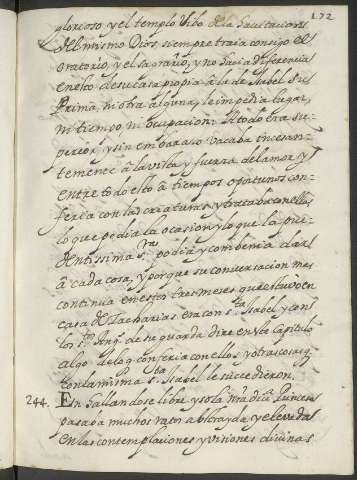 172
glorioso y el templo vibo de la havitacion
del mismo Dios siempre traia consigo el
oratorio, y el sagrario, y no hacia diferencia
en esto de su casa propia â la de Isabel su
Prima, ni otra alguna, le impedia lugar,
ni tiempo, ni ocupacion: â todo era su-
perior, y sin embaraso vacaba incesan-
temente â la vista y fuerza del amor y
entre todo esto â tiempos oportunos con-
feria con las criaturas y trataba con ellas
lo que pedia la ocasion y lo que la pru-
dentissima Sra podia y combenia dar
â cada cosa, y porque su conversacion mas
continua en estos tres meses que estuvo en
casa de Zacharias era con Sta Isabel y con
los Stos Ang. de su guarda dire en este capitulo
algo de lo q conferia con ellos y otras cosas q
con la misma Sta Isabel le sucedieron.
244. En hallandose libre y sola nra divina Princesa
pasaba muchos ratos abstrayda y elevada
en las contemplaciones y visiones divinas